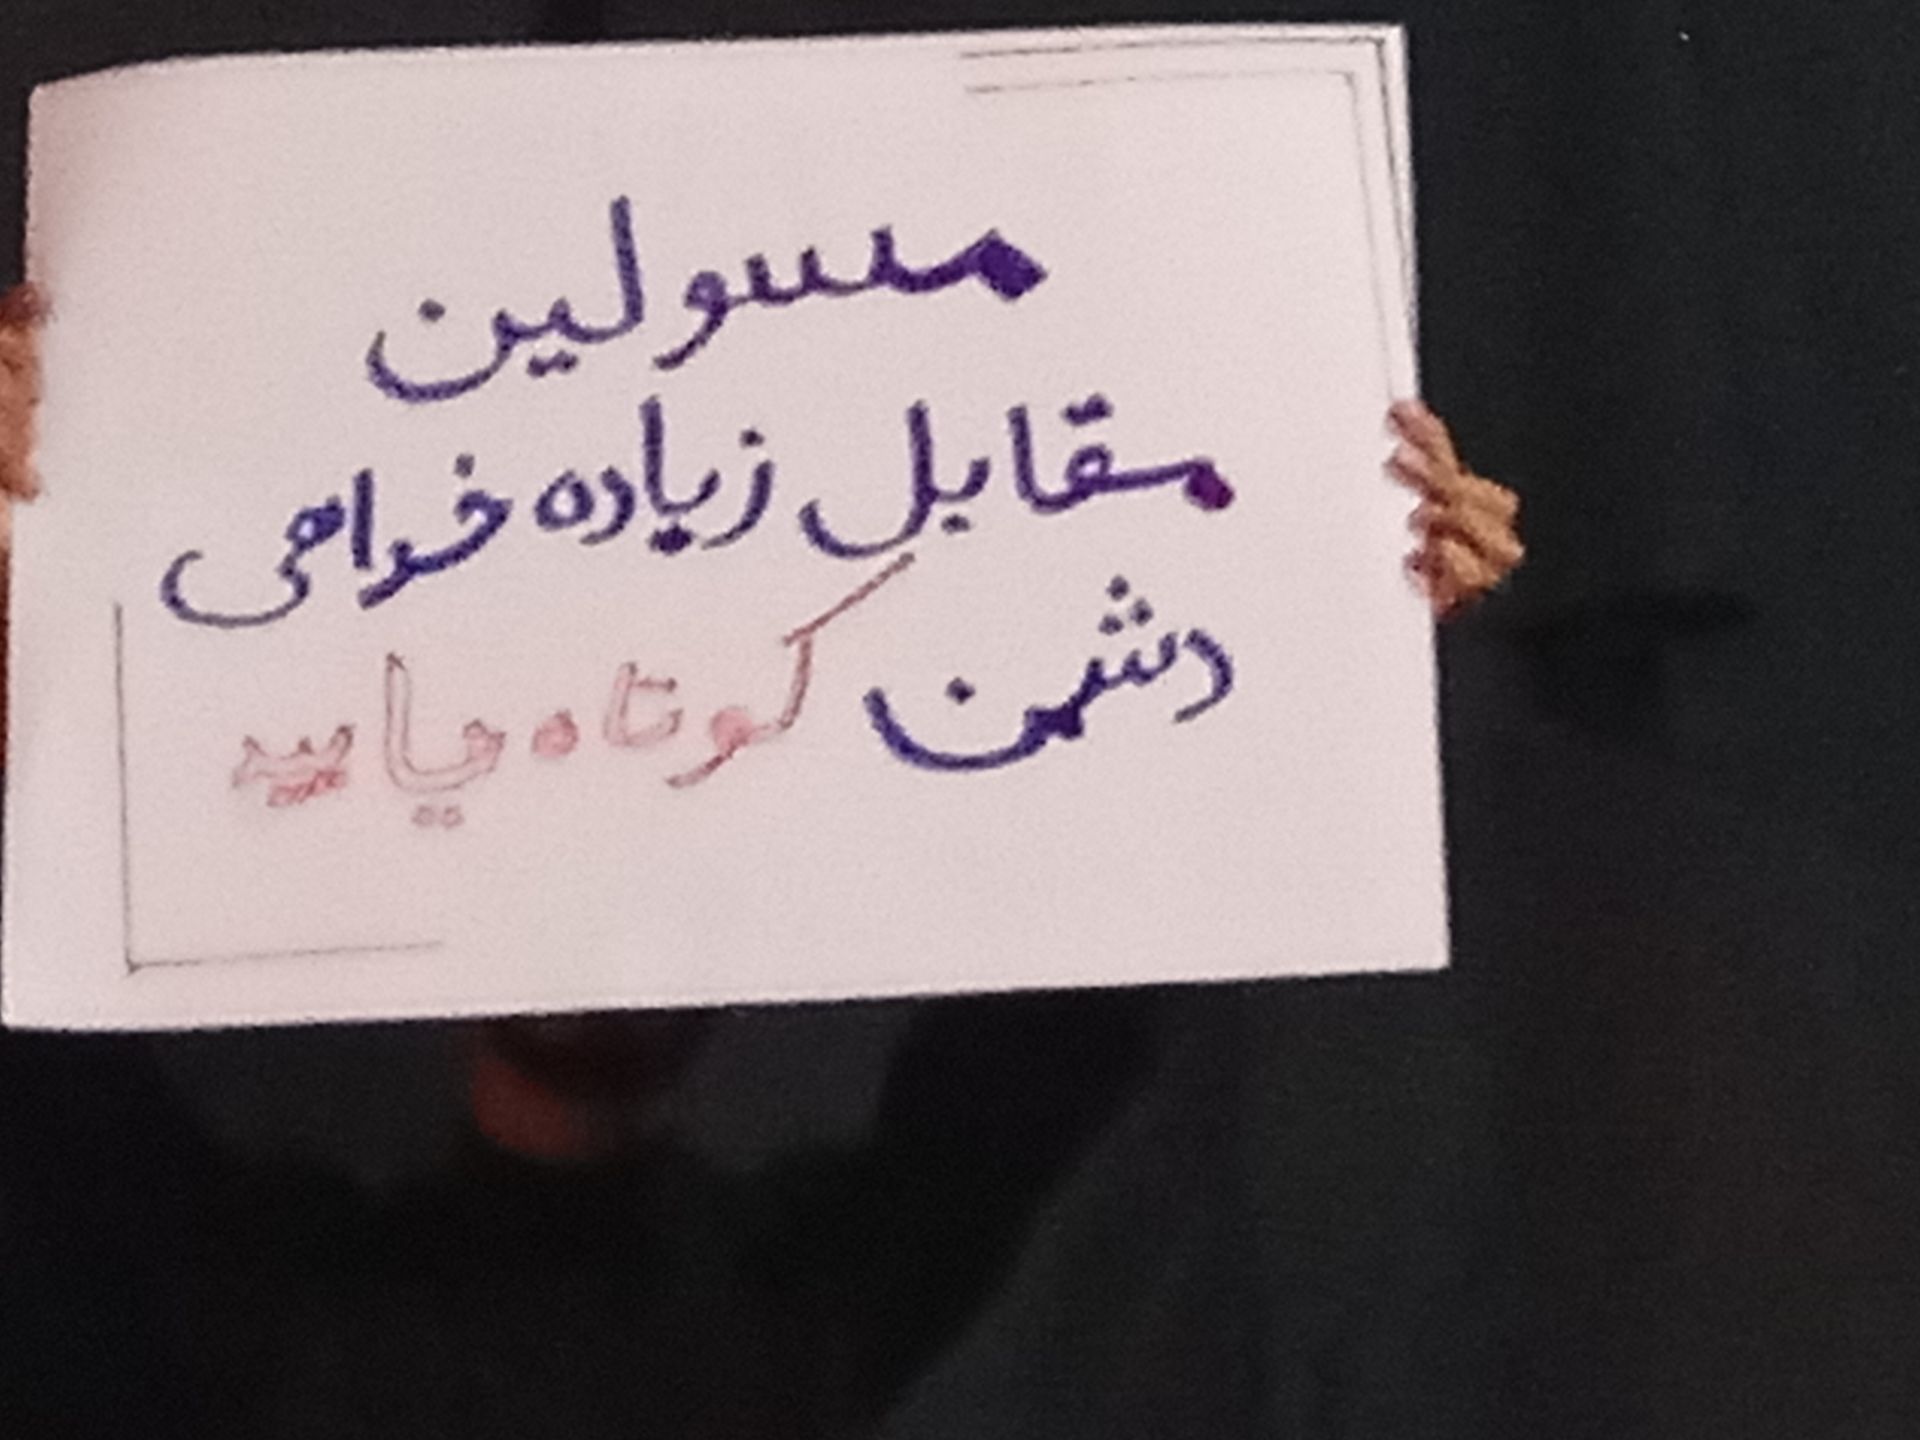 مسولین
مقابل زیاده خواهی
دشمن کوتاه نیایید